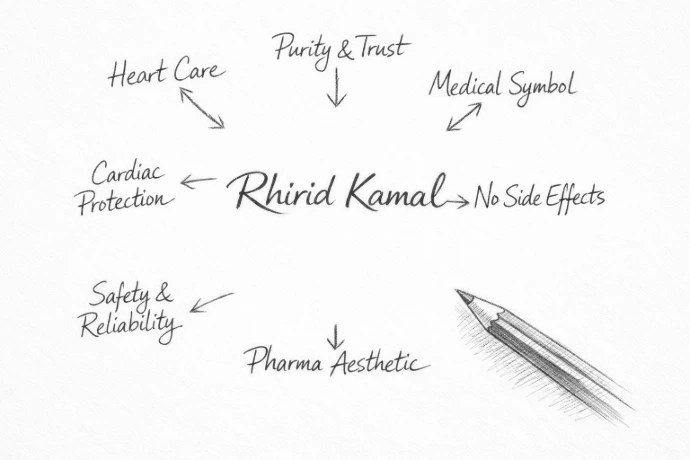 Purity & Trust
Heart Care
Medical Symbol
Cardiac
Protection
Rhirid Kamal
No Side Effects
Safety &
Reliability
Pharma Aesthetic